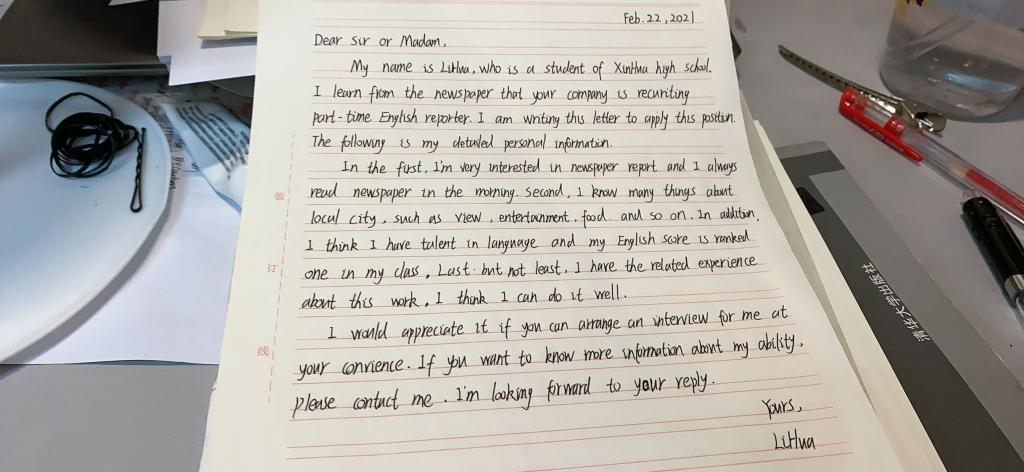 Feb.22,2021
Dear Sir or Madam,
My name is LiHua, who is a student of XinHua high school.
I learn from the newspaper that your company is recuriting
part-time English reporter. I am writing this letter to apply this position.
The following is my detailed personal information.
In the first, I'm very interested in newspaper report and I always
read newspaper in the morning. Second, I know many things about
local city, such as view, entertainment, food and so on. In addition,
I think I have talent in language and my English score is ranked
one in my class. Last but not least, I have the related experience
about this work. I think I can do it well.
I would appreciate it if you can arrange an interview for me at
your convience. If you want to know more information about my ability,
please contact me. I'm looking forward to your reply.
Yours,
LiHua
装
订
线
清华大学出版社